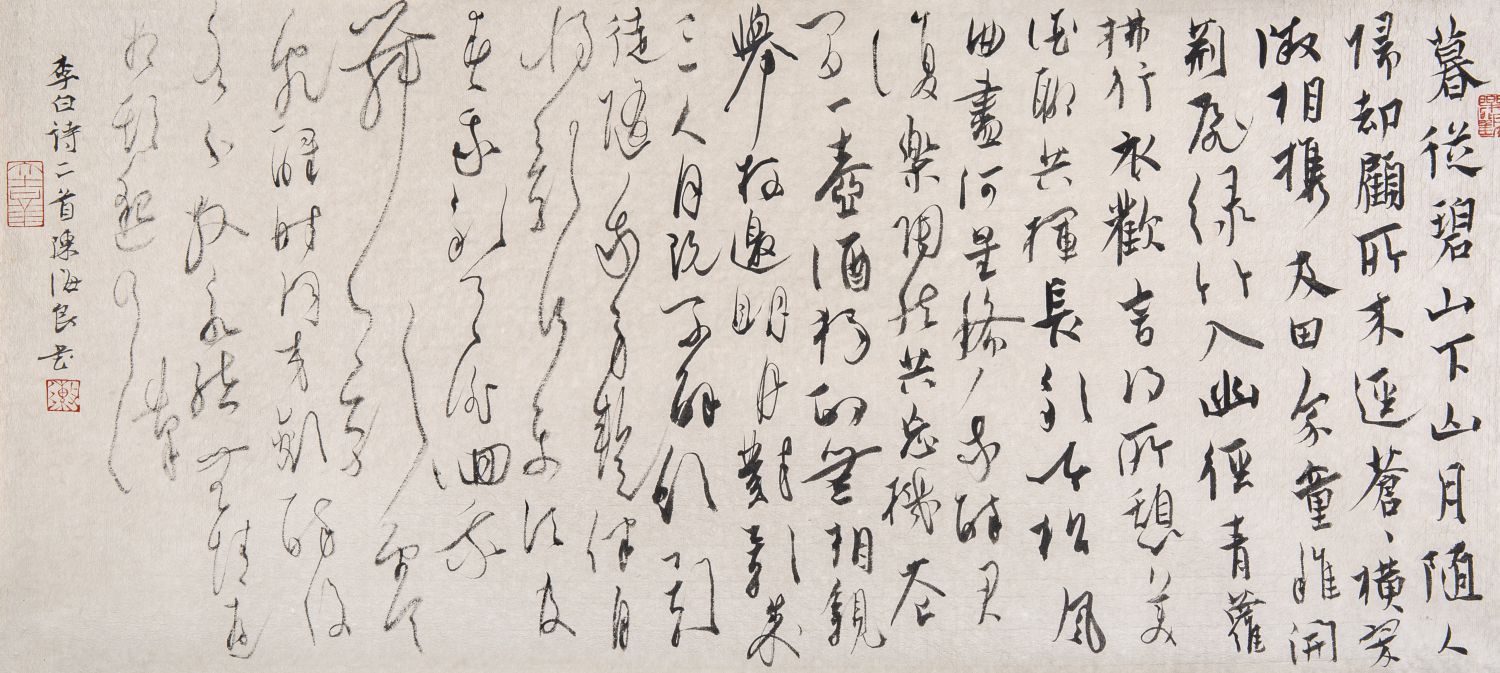 暮從碧山下山月隨人
歸却顧所來逕蒼〻橫翠
微相携及田家童稚開
荆扉绿竹入幽徑青蘿
拂行衣歡言得所憩美
酒聊共揮長松風
曲盡河星稀我醉君
復樂陶然共忘機花
間一壺酒獨酌無相親
舉杯邀明月對影成
三人月既不解飲影
徒隨我身暫伴月
將影行樂須及
春我歌月徘徊我
舞影零
亂醒時同交歡醉後
各分散永結無情遊
相期邈雲漢
李白詩二首 陳海良書